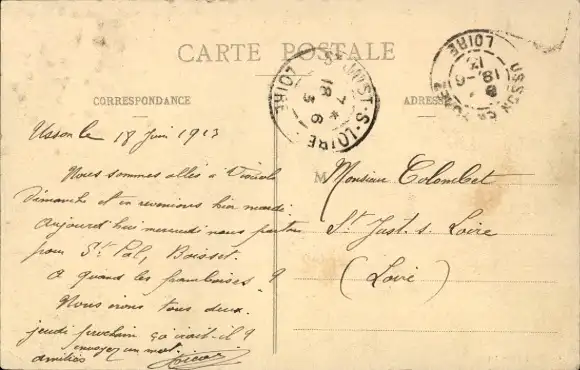 CARTE POSTALE
CORRESPONDANCE
ADRESSE
Usson le 18 Juin 1913
Nous sommes allés à
Dimanche et en revenions hier mardi.
Aujourd'hui mercredi nous partons
pour St Pal, Boisset.
à quand les framboises ?
Nous irons tous deux
jeudi prochain ça irait-il ?
envoyez un mot.
amitiés
M Monsieur Colombet
St Just. s. Loire
(Loire)
ST JUST-S-LOIRE
7 *
18 6
LOIRE
USSON
18 - 6
13
LOIRE